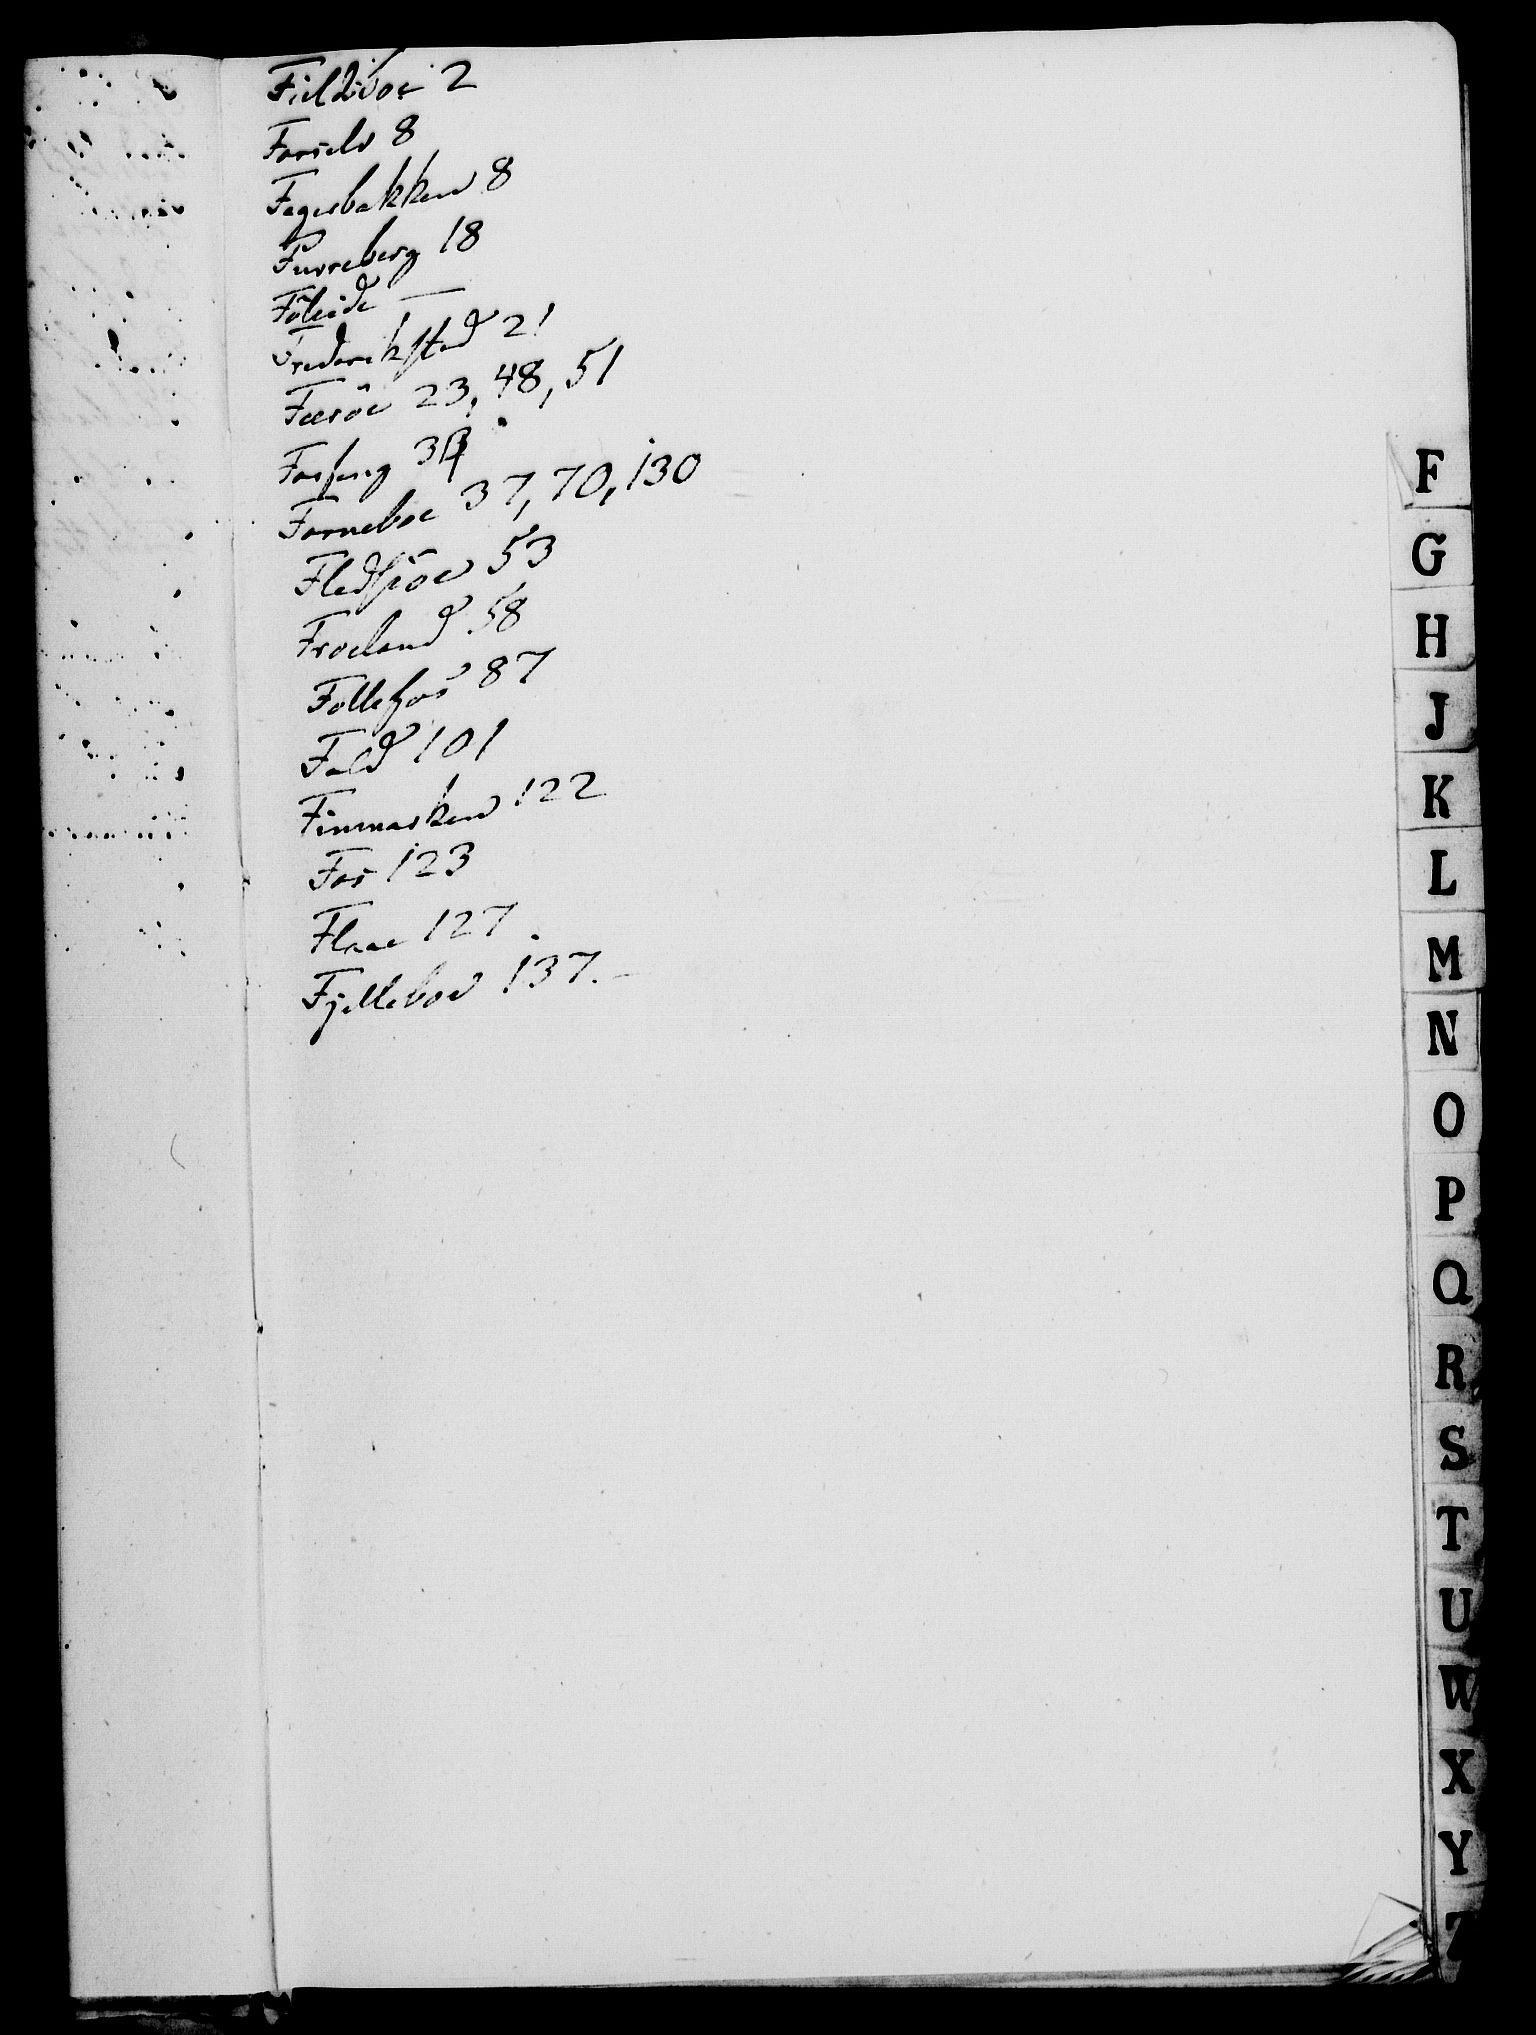 Fieldboe 2
Forselv 8
Fagerbakken 8
Furreberg 18
Föleide —
Frederikstad 21
Færöe 23, 48, 51
Fosseng 34
Forneboe 37, 70, 130
Fledsjöe 53
Froeland 58
Follefos 87
Fald 101
Finmarken 122
Fos 123
Flaae 127.
Fjelleboe 137.
F
G
H
J
K
L
M
N
O
P
Q
R
S
T
U
W
X
Y
Z